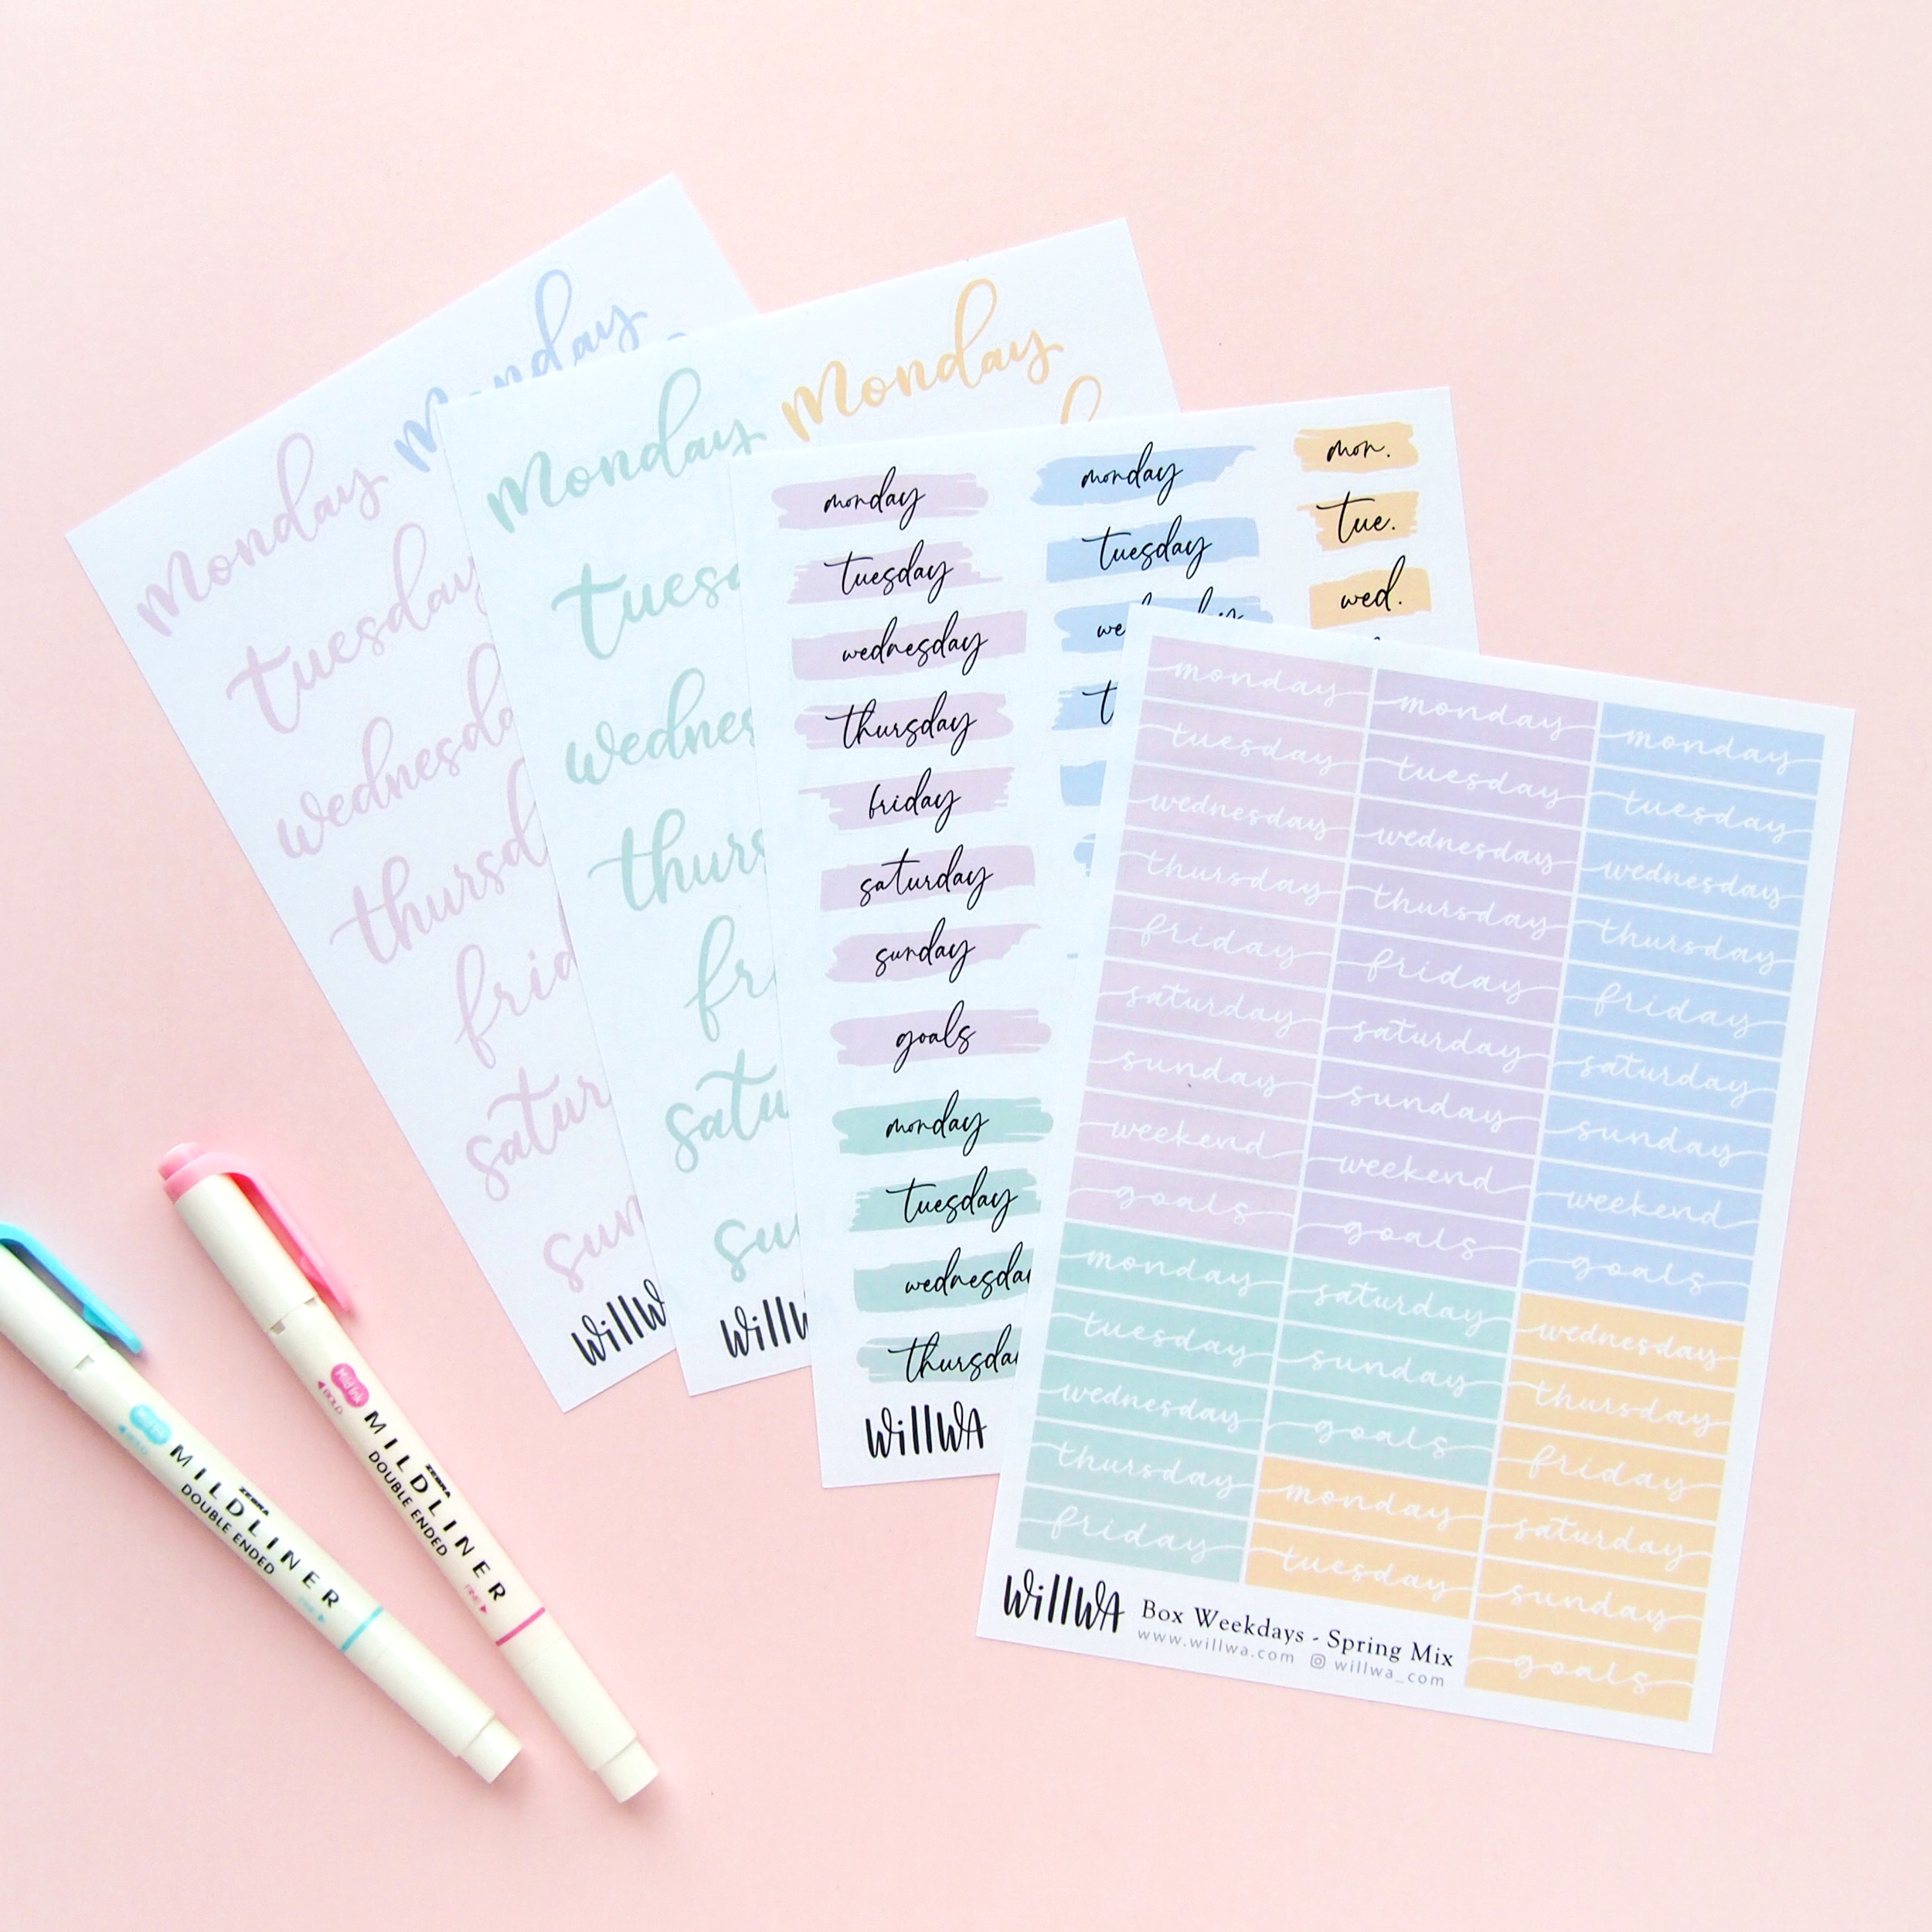 Monday
Monday
tuesday
wednesda
thursd
frid
satur
sun
WillW
Monday
Monday
tuesd
wednes
thurs
fri
satu
su
WillW
monday
tuesday
wednesday
thursday
friday
saturday
sunday
goals
monday
tuesday
wednesday
thursday
WillWA
monday
tuesday
we
t
mon.
tue.
wed.
monday
tuesday
wednesday
thursday
friday
saturday
sunday
weekend
goals
monday
tuesday
wednesday
thursday
friday
monday
tuesday
wednesday
thursday
friday
saturday
sunday
weekend
goals
saturday
sunday
goals
monday
tuesday
monday
tuesday
wednesday
thursday
friday
saturday
sunday
weekend
goals
wednesday
thursday
friday
saturday
sunday
goals
WillWA
Box Weekdays - Spring Mix
www.willwa.com willwa_com
Mild Ink
BOLD
ZEBRA
MILDLINER
DOUBLE ENDED
FINE
Mild Ink
BOLD
ZEBRA
MILDLINER
DOUBLE ENDED
FINE